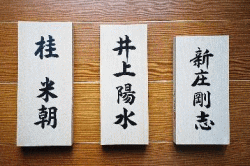 桂米朝
井上陽水
新庄剛志